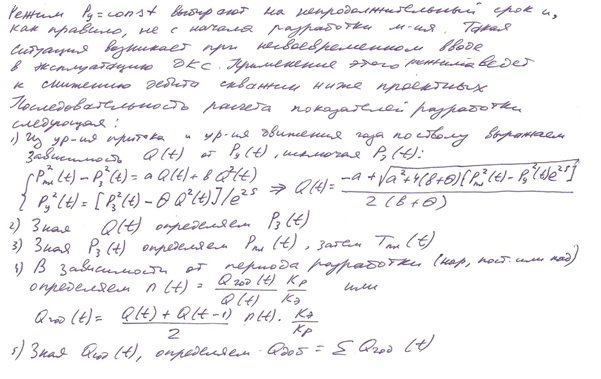 Режим Pу=const выбирают на непродолжительный срок и,
как правило, не с начала разработки м-ия. Такая
ситуация возникает при несвоевременном вводе
в эксплуатацию ДКС. Применение этого режима ведет
к снижению дебита скважин ниже проектных
Последовательность расчета показателей разработки
следующая:
1) Из ур-ия притока и ур-ия движения газа по стволу выражаем
зависимость Q(t) от Pу(t), исключая Pз(t):
{ Pпл²(t) - Pз²(t) = aQ(t) + bQ²(t)
{ Pу²(t) = [Pз²(t) - θQ²(t)]/e^2s ⇒ Q(t) = (-a + √(a² + 4(b+θ)[Pпл²(t) - Pу²(t)e^2s])) / (2(b+θ))
2) Зная Q(t) определяем Pз(t)
3) Зная Pз(t) определяем Pпл(t), затем Tпл(t)
4) В зависимости от периода разработки (нар, пост. или пад)
определяем n(t) = Qгод(t)/Q(t) · Kр/Kэ или
Qгод(t) = (Q(t) + Q(t-1))/2 · n(t) · Kэ/Kр
5) Зная Qгод(t), определяем Qдоб = Σ Qгод(t)